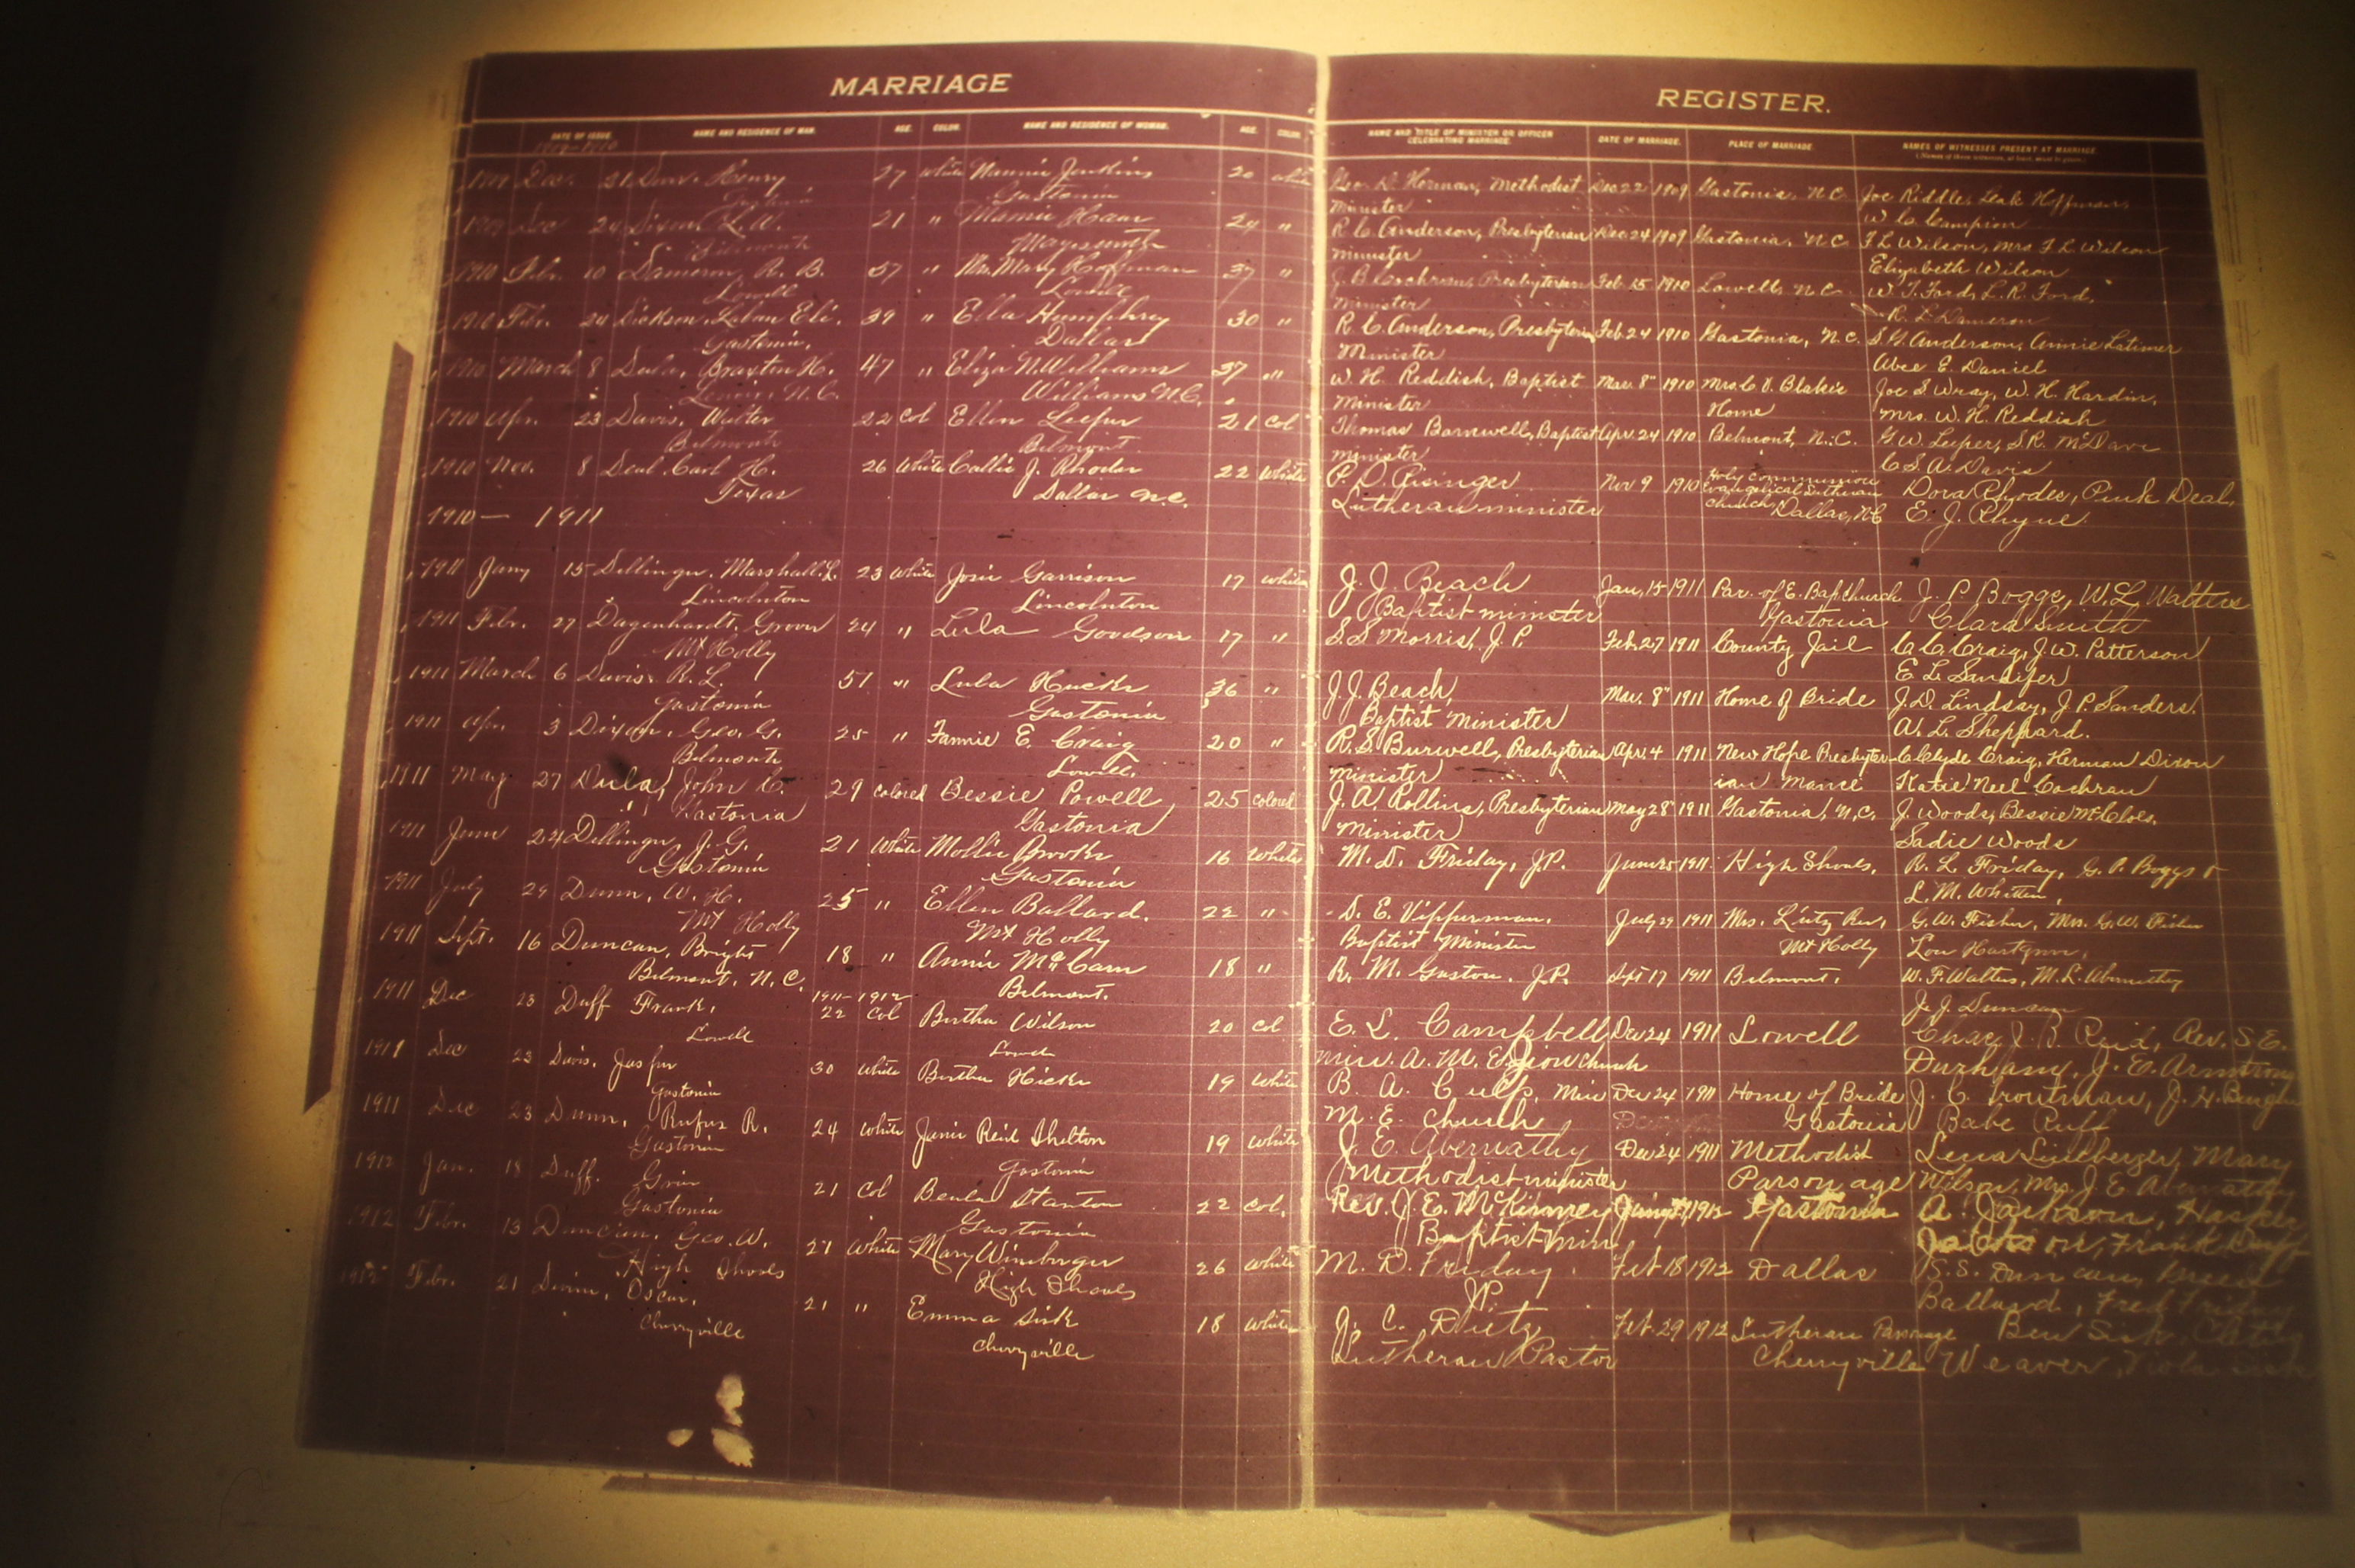 MARRIAGE
REGISTER.
DATE OF ISSUE. NAME AND RESIDENCE OF MAN. AGE. COLOR. NAME AND RESIDENCE OF WOMAN. AGE. COLOR. NAME AND TITLE OF MINISTER OR OFFICER CELEBRATING MARRIAGE. DATE OF MARRIAGE. PLACE OF MARRIAGE. NAMES OF WITNESSES PRESENT AT MARRIAGE.
1909-1910
1909 Dec. 21 Henry 27 white Nannie Jenkins 20 white Geo. D. Herman, Methodist Dec 22 1909 Gastonia, N.C. Joe Riddle, Leak Hoffman,
Gastonia Gastonia Minister W. C. Campion
1909 Dec 24 Dixon, L. W. 21 " Mamie 24 " R. C. Anderson, Presbyterian Dec 24 1909 Gastonia, N.C. F L Wilson, Mrs F. L. Wilson
Belmont Mayesworth Minister Elizabeth Wilson
1910 Febr. 10 Dameron, R. B. 57 " Mrs. Mary Hoffman 37 " Cochran, Presbyterian Feb 15 1910 Lowell, N.C. W. T. Ford, L. R. Ford,
Lowell Lowell Minister R. L. Dameron
1910 Febr. 24 Dickson, Laban Eli. 39 " Ella Humphrey 30 " R. C. Anderson, Presbyterian Feb. 24 1910 Gastonia, N.C. Anderson, Annie Latimer
Gastonia. Dallas Minister E. Daniel
1910 March 8 Dula, Braxton H. 47 " Eliza N. Williams 37 " W. H. Reddish, Baptist Mar. 8" 1910 Mrs C. Blakie Joe S. Wray, W. H. Hardin,
Lenoir, N.C. Williams N.C. Minister Home Mrs. W. H. Reddish
1910 Apr. 23 Davis, Walter 22 Col Ellen Leeper 21 Col Thomas Barnwell, Baptist Apr. 24 1910 Belmont, N.C. G. W. Leeper, S.R.
Belmont Belmont. Minister C. S. A. Davis
1910 Nov. 8 Deal, Carl H. 26 White Callie J. Rhodes 22 White P. D. Risinger Nov 9 1910 Holy Communion Evangelical Lutheran Dora Rhodes, Pink Deal,
Texas Dallas N.C. Lutheran minister Church, Dallas, N.C. E. J. Rhyne.
1910 — 1911
1911 Jany 15 Dellinger, Marshall L. 23 White Josie Garrison 17 white J. J. Beach Jan. 15 1911 Par. of E. Bap. Church J. P. Bogge, W. L. Walters
Lincolnton Lincolnton Baptist minister Gastonia Clara Smith
1911 Febr. 27 Dagenhardt, Grover 24 " Lula Goodson 17 " S. S. Morris, J. P. Feb. 27 1911 County Jail C. C. Craig, J. W. Patterson
Mt Holly E. L. Sandifer
1911 March 6 Davis R. L. 51 " Lula Hucks 36 " J. J. Beach, Mar. 8" 1911 Home of Bride J. D. Lindsay, J. P. Sanders.
Gastonia Gastonia Baptist Minister A. L. Sheppard.
1911 Apr. 3 Dixon, Geo. G. 25 " Fannie E. Craig 20 " R. S. Burwell, Presbyterian Apr. 4 1911 New Hope Presbyter- C. Clyde Craig, Herman Dixon
Belmont Lowell. Minister ian Manse Katie Neel Cochran
1911 May 27 Dula, John C. 29 colored Bessie Powell 25 colored J. A. Rollins, Presbyterian May 28" 1911 Gastonia, N.C. J. Woods, Bessie
Gastonia Gastonia Minister Sadie Woods
1911 June 24 Dellinger, J. G. 21 White Mollie Brooks 16 White M. D. Friday, J.P. June 25 1911. High Shoals, R. L. Friday, G. P. Boggs &
Gastonia Gastonia L. M. Whitten,
1911 July 29 Dunn, W. H. 25 " Ellen Ballard. 22 " D. E. Vipperman. July 29 1911 Mrs. Lutz Res, G. W. Fisher, Mrs. G. W. Fisher
Mt Holly Mt Holly Baptist Minister Mt Holly Lou
1911 Sept. 16 Duncan, Bright 18 " Annie McCarn 18 " R. M. Gaston. J.P. Sept 17 1911 Belmont. W. F. Walters, M. L. Abernathy
Belmont, N.C. Belmont. J. J. Duncan
1911-1912
1911 Dec 23 Duff Frank, 22 Col Bertha Wilson 20 col E. L. Campbell Dec 24 1911 Lowell Chas. J. B. Reid, Rev. S. E.
Lowell Lowell min. A. M. E. Zion Church Durham, J. E. Armstrong
1911 Dec 23 Davis, Jasper 30 white Bertha Hicks 19 white B. A. Culp, Min Dec 24 1911 Home of Bride J. C. Troutman, J. H.
Gastonia M. E. Church Gastonia Babe Ruff
1911 Dec 23 Dunn, Rufus R. 24 white Janie Reid Shelton 19 white J. E. Abernathy Dec 24 1911 Methodist Lena Lineberger, Mary
Gastonia Gastonia Methodist minister Parsonage Wilson, Mrs J. E. Abernathy
1912 Jan. 18 Duff. 21 Col Beulah Stanton 22 Col. Rev. J. E. McKinney 1912 Gastonia A. Jackson,
Gastonia Gastonia Baptist Min Jackson Frank Duff
1912 Febr. 13 Duncan, Geo. W. 27 White Mary Wineberger 26 white M. D. Friday. Feb 18 1912 Dallas S. S. Duncan,
High Shoals High Shoals JP. Ballard, Fred Friday
1912 Febr. 21 Oscar, 21 " Emma Sisk 18 white J. C. Dietz Feb. 29 1912 Lutheran Parsonage Ben Sisk,
Cherryville Cherryville Lutheran Pastor Cherryville Weaver, Viola Sisk